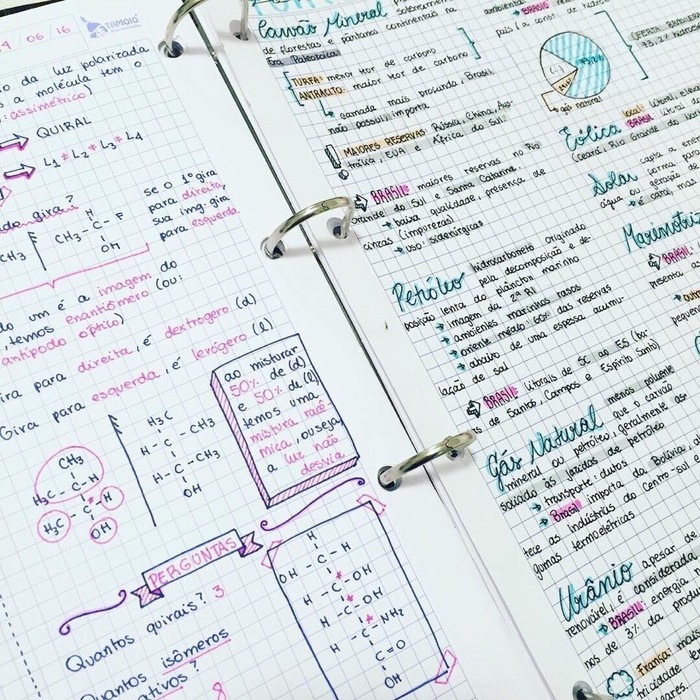 9 / 06 / 16
TAMOIO
o da luz polarizada
s a molécula tem o
assimétrico)
QUIRAL
L₁ ≠ L₂ ≠ L₃ ≠ L₄
gira?
CH₃
H
CH₃ - C - F
OH
se o 1º gira
para direita,
sua img. gira
para esquerda.
um é a imagem do
, temos enantiômero (ou:
antípodo óptico)
ira para direita, é dextrogero (d)
Gira para esquerda, é levógero (l)
CH₃
H₃C - C - H
H₃C - C - H
OH
H₃C
H - C - CH₃
H - C - CH₃
OH
ao misturar
50% de (d)
e 50% de (l)
temos uma
mistura racê-
mica, ou seja,
a luz não
desvia
PERGUNTAS
Quantos quirais? 3
Quantos isômeros
ativos? 8
H
OH - C - H
H - C - OH
H - C - OH
H - C - NH₂
C = O
OH
Carvão Mineral
de florestas e pântanos continentais na
Era Paleozoica
TURFA: menor teor de carbono
ANTRACITO: maior teor de carbono
camada mais profunda Brasil
não possui, importa
MAIORES RESERVAS: Rússia, China, Aus-
trália, EUA e África do Sul
BRASIL: maiores reservas no Rio
Grande do Sul e Santa Catarina
baixa qualidade, presença de
cinzas (impurezas)
uso: siderúrgicas
Petróleo hidrocarboneto originado
pela decomposição e de-
posição lenta do plâncton marinho
imagem da 2ª RI
ambientes marinhos rasos
oriente médio: 60% das reservas
abaixo de uma espessa acumu-
lação de sal
BRASIL: litorais de SC ao ES (ba-
de Santos, Campos e Espírito Santo)
Gás Natural menos poluente
que o carvão
mineral ou petróleo, geralmente as-
sociado às jazidas de petróleo
transporte: dutos
Brasil importa da Bolívia,
tece as indústrias do Centro-sul e
gumas termoelétricas
Urânio apesar de
renovável, é considerada
BRASIL: energia
nos de 3% da produ
França: mais
tricidade
BRASIL
gás natural
OFERTA
Eólica local: litoral,
BRASIL: litoral
(Ceará, Rio Grande
Solar capta a ener
forma para
água ou geração de
é cara, mas
Maremotriz
BRASIL:
presenta